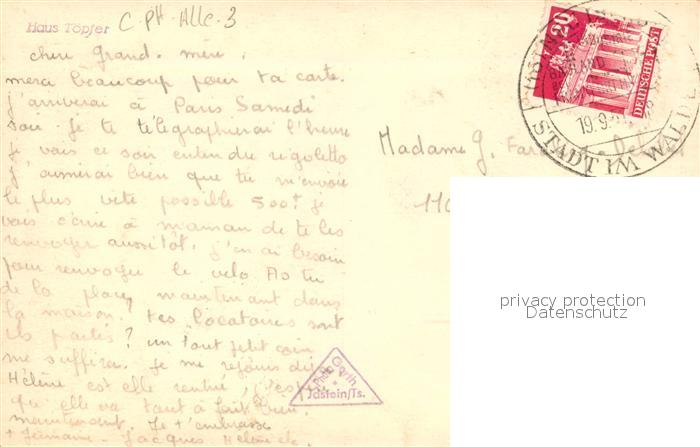 Haus Töpfer
C-PH-Alle-3
chere grand-mère,
merci beaucoup pour ta carte.
j'arriverai à Paris Samedi
soir je te télégraphierai l'heure
je vais ce soir entendre rigoletto
j'aimerai bien que tu m'envoie
le plus vite possible 500f je
vais écrire à maman de te les
renvoyer aussitôt, j'en ai besoin
pour renvoyer le velo As tu
de la place maintenant dans
la maison? tes locataires sont
ils partis? un tout petit coin
me suffira. je me rejouis
Hélène est elle rentrée,
qu'elle va tout à fait bien
maintenant. Je t'embrasse
Jacques Hélène
20
DEUTSCHE POST
19.9.
STADT IM WALDE
Madame G.
Photo Garth
Idstein/Ts.
privacy protection
Datenschutz